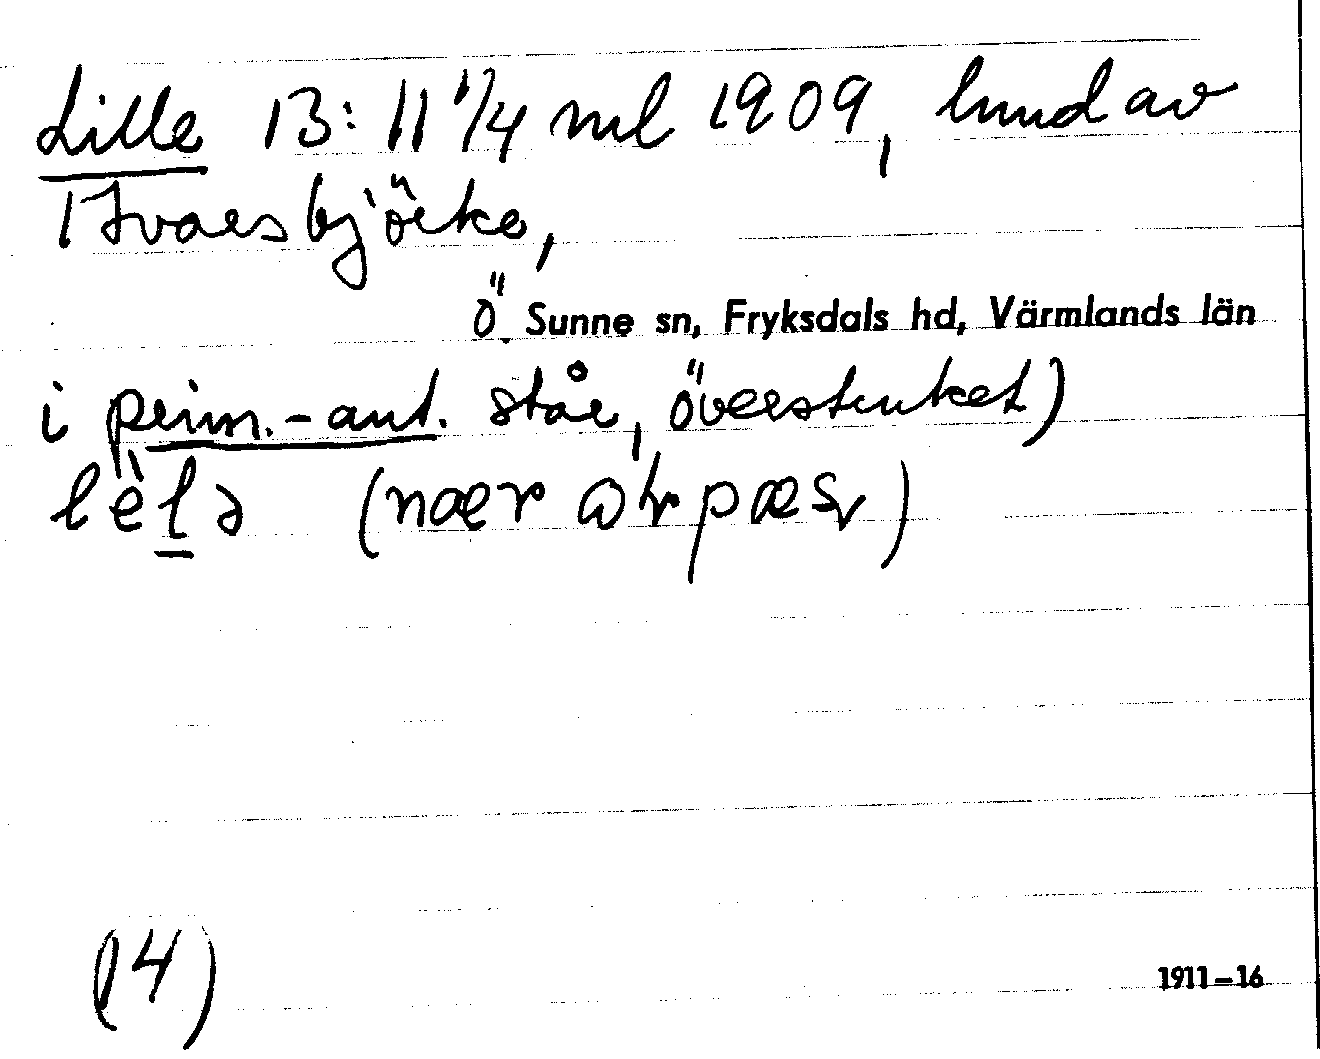 Lille 13:11 1/4 ml 1909, lmd av
Ivarsbjörke,
Ö. Sunne sn, Fryksdals hd, Värmlands län
i prim.-ant. står, överstruket)
(nær
(4)
1911–16